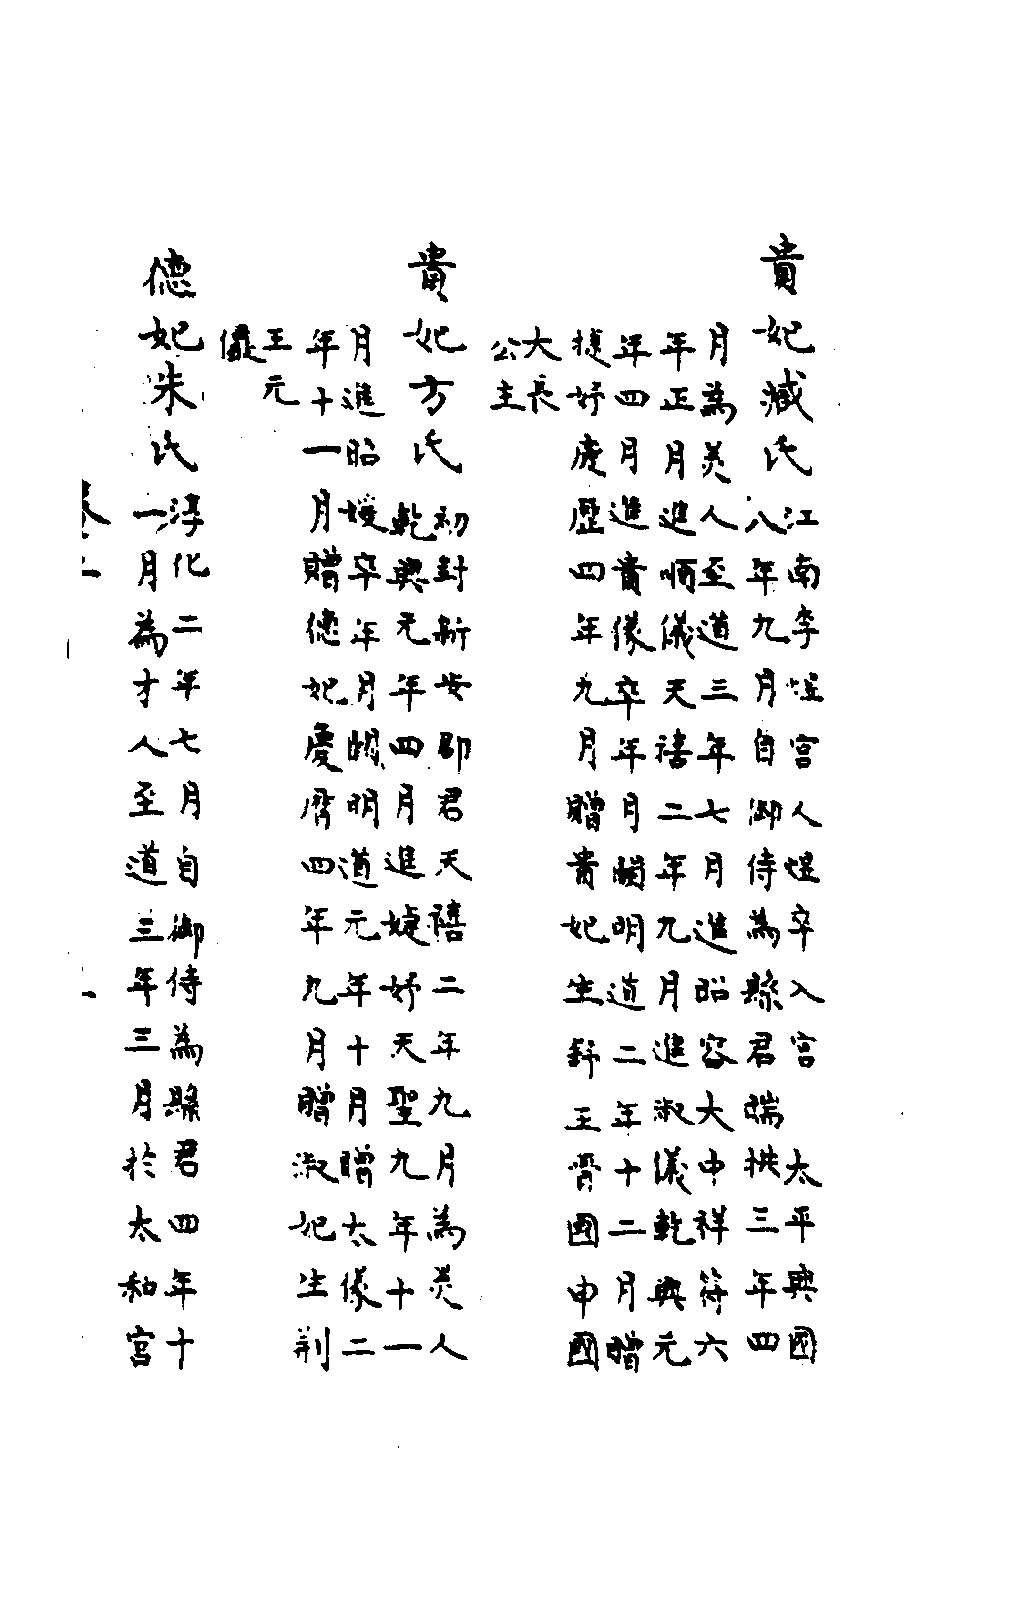 貴妃臧氏
江南李煜宮人煜卒入宮 太平興國
八年九月自御侍為縣君端拱三年四
月為美人至道三年七月進昭容大中祥符六
年正月進順儀天禧二年九月進淑儀乾興元
年四月進貴儀卒年月闕明道二年十二月贈
捷妤慶歷四年九月贈貴妃生舒王晉國申國
大長
公主
貴妃方氏
初封新安郡君天禧二年九月為美人
乾興元年四月進婕妤天聖九年十一
月進昭媛卒年月闕明道元年十月贈太儀二
年十一月贈德妃慶曆四年九月贈淑妃生荊
王元
儼
德妃朱氏
淳化二年七月自御侍為縣君四年十
一月為才人至道三年三月於太和宮